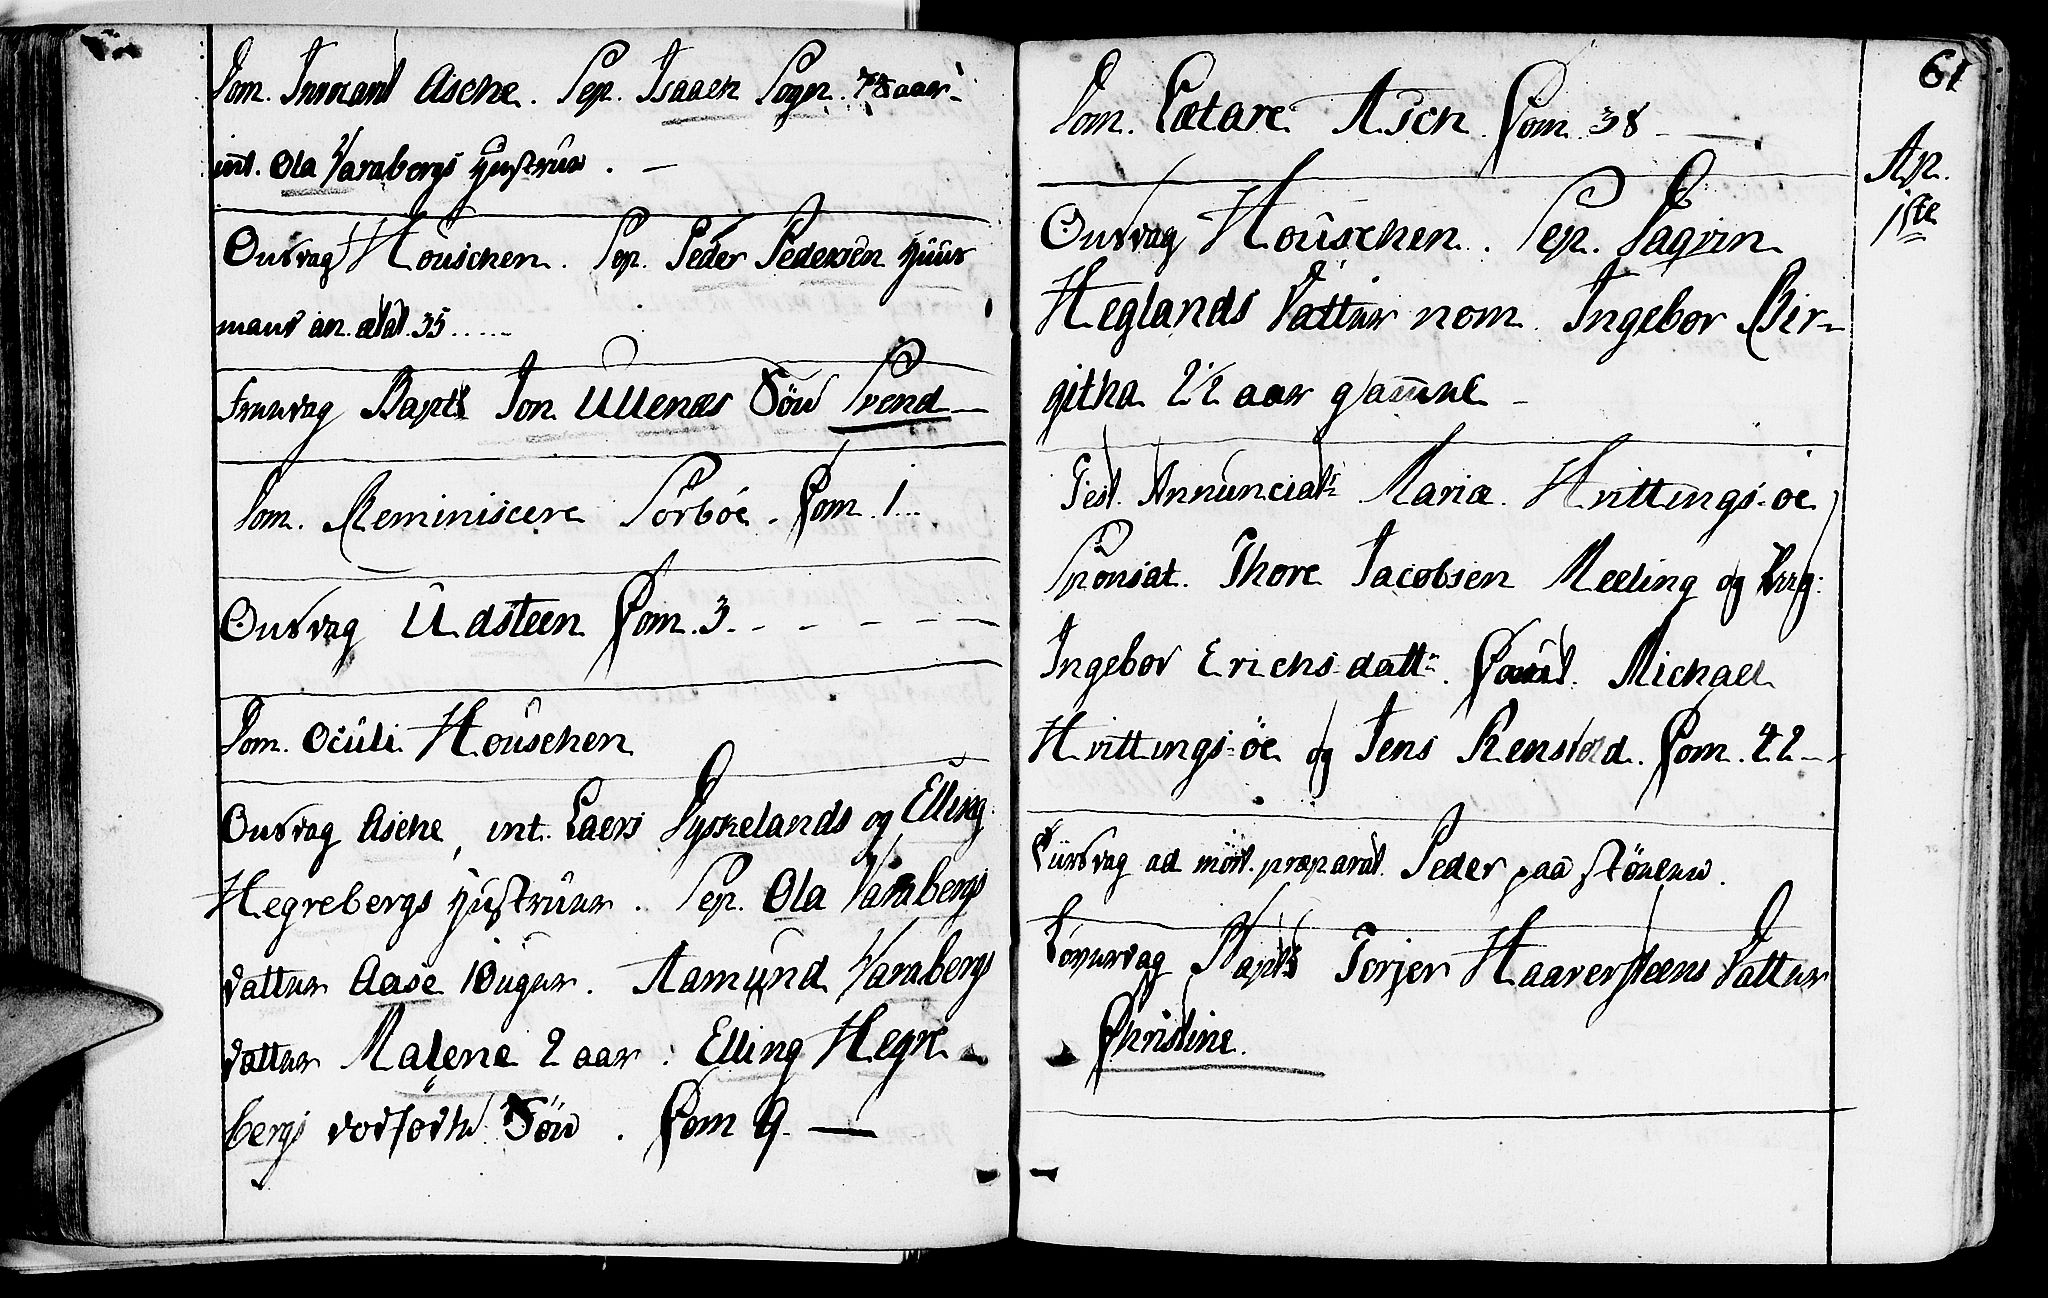 Dom. Invocavit Aske. Sep. Isaach Sogn. 78 aar.
int. Ola Varabergs Hustrue. —
Onsdag Houschen. Sep. Peder Pedersen Huus
mand an. ætat. 35 . . . . .
Freudag Bapt: Jon Ullenæs Sön Svend —
Dom. Reminiscere Sörböe. Com. 1...
Onsdag Udsteen Com. 3. - - - - -
Dom. Oculi Houschen
Onsdag Aske, int. Laers Dysselands og Elling
Hegrebergs Hustruer. Sep. Ola Varabergs
datter Aase 10 uger. Aamund Varabergs
datter Malene 2 aar. Elling Hegre-
bergs dodfödte Sön. Com 9. —
61
Dom. Lætare Asch. Com. 38 —
Ap.
1ste
Onsdag Houschen. Sep. Dagvin
Heglands Datter nom. Ingebor Bir-
githa 2 1/2 aar gammel —
Fest. Annunciat: Mariæ. Hvittings-öe
Sponsat. Thore Jacobsen Meeling og Pig:
Ingebor Erichsdatt:. Cavit. Michael
Hvittings-öe og Jens Rensvod. Com. 42 - -
Tiirsdag ad mort. præparat. Peder paa Stölen.
Löverdag Bapt: Torjer Haaversteens Datter
Christine.